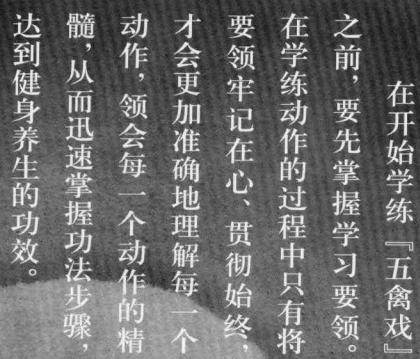 在开始学练『五禽戏』
之前，要先掌握学习要领。
在学练动作的过程中只有将
要领牢记在心、贯彻始终，
才会更加准确地理解每一个
动作，领会每一个动作的精
髓，从而迅速掌握功法步骤，
达到健身养生的功效。